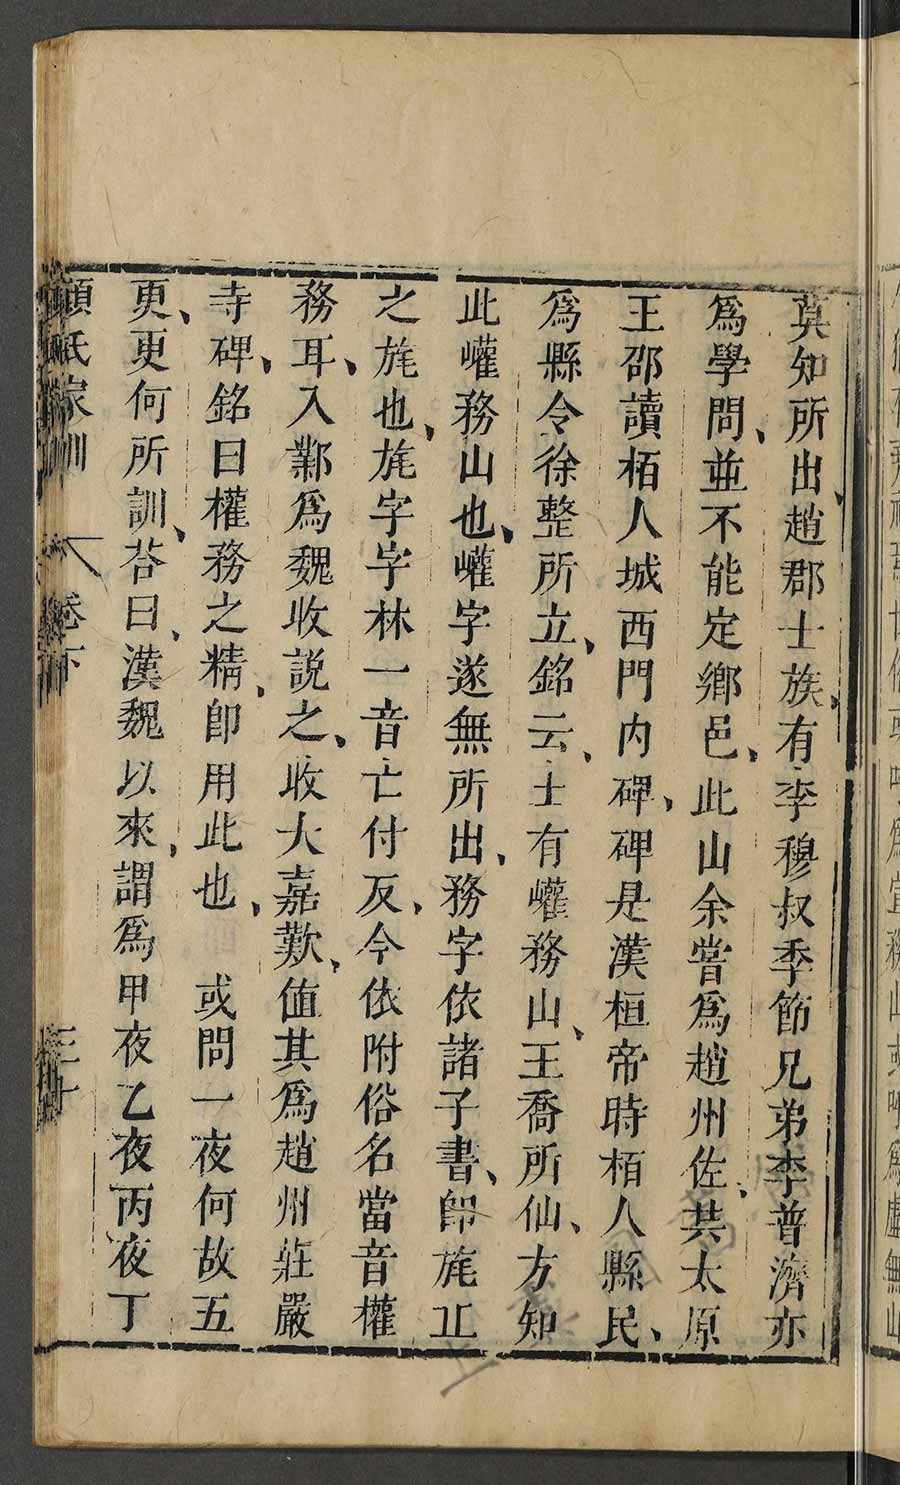 莫知所出趙郡士族有李穆叔季節兄弟李普濟亦
爲學問並不能定鄉邑此山余嘗爲趙州佐共太原
王邵讀栢人城西門内碑碑是漢桓帝時栢人縣民
爲縣令徐整所立銘云土有巏務山王喬所仙方知
此巏務山也巏字遂無所出務字依諸子書即旄丘
之旄也旄字字林一音亡付反今依附俗名當音權
務耳入鄴爲魏收説之收大嘉歎值其爲趙州莊嚴
寺碑銘曰權務之精即用此也 或問一夜何故五
更更何所訓荅曰漢魏以來謂爲甲夜乙夜丙夜丁
顔氏家訓 卷下 三十